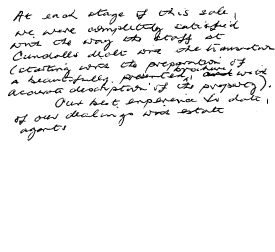 At each stage of this sale,
we were completely satisfied
with the way the staff at
Cundalls dealt with the transaction
(starting with the preparation of
a beautifully presented, brochure with
accurate description of the property).
Our best experience to date,
of our dealings with estate
agents